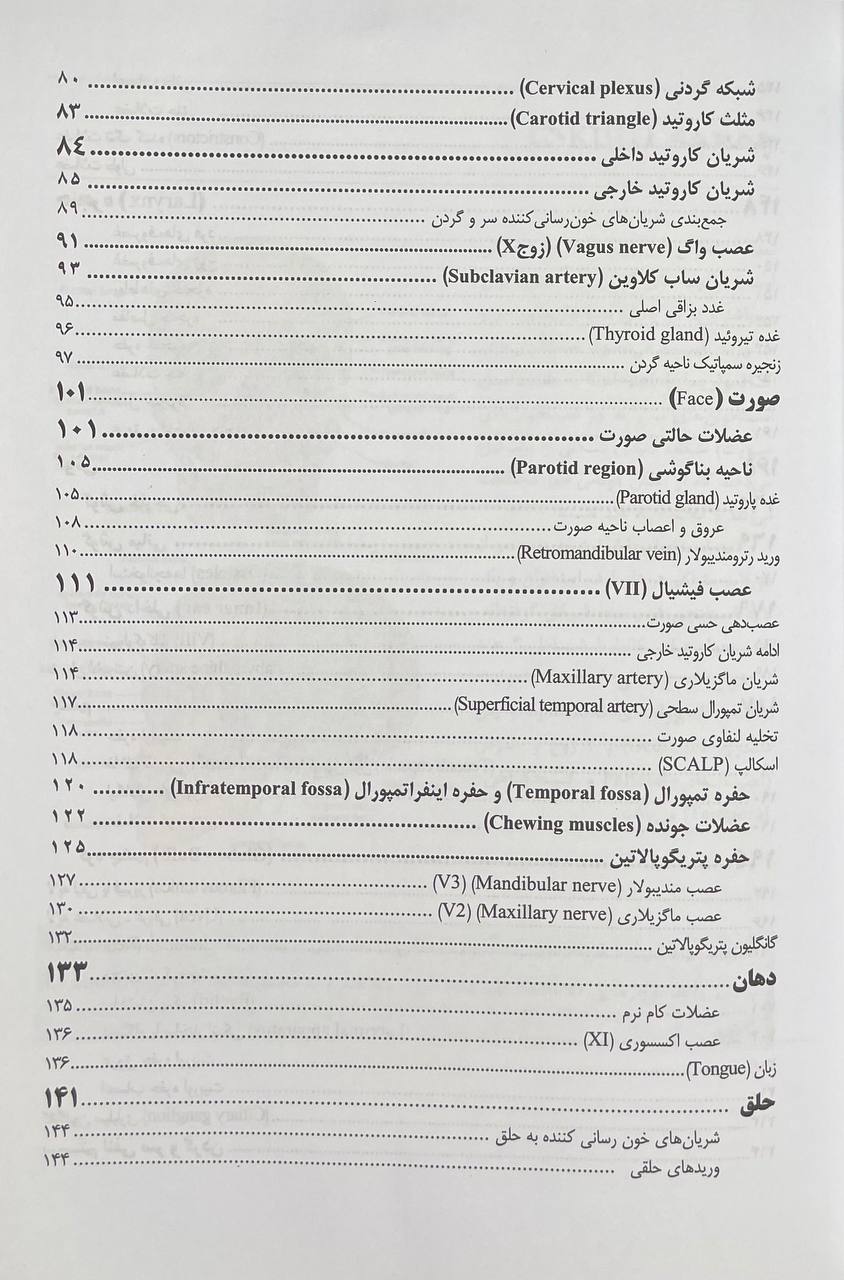 شبکه گردنی (Cervical plexus) ........ ۸۰
مثلث کاروتید (Carotid triangle) ........ ۸۳
شریان کاروتید داخلی ........ ۸٤
شریان کاروتید خارجی ........ ۸۵
جمع‌بندی شریان‌های خون‌رسانی‌کننده سر و گردن ........ ۸۹
عصب واگ (Vagus nerve) (زوجX) ........ ۹۱
شریان ساب کلاوین (Subclavian artery) ........ ۹۳
غدد بزاقی اصلی ........ ۹۵
غده تیروئید (Thyroid gland) ........ ۹۶
زنجیره سمپاتیک ناحیه گردن ........ ۹۷
صورت (Face) ........ ۱۰۱
عضلات حالتی صورت ........ ۱۰۱
ناحیه بناگوشی (Parotid region) ........ ۱۰۵
غده پاروتید (Parotid gland) ........ ۱۰۵
عروق و اعصاب ناحیه صورت ........ ۱۰۸
ورید رترومندیبولار (Retromandibular vein) ........ ۱۱۰
عصب فیشیال (VII) ........ ۱۱۱
عصب‌دهی حسی صورت ........ ۱۱۳
ادامه شریان کاروتید خارجی ........ ۱۱۴
شریان ماگزیلاری (Maxillary artery) ........ ۱۱۴
شریان تمپورال سطحی (Superficial temporal artery) ........ ۱۱۷
تخلیه لنفاوی صورت ........ ۱۱۸
اسکالپ (SCALP) ........ ۱۱۸
حفره تمپورال (Temporal fossa) و حفره اینفراتمپورال (Infratemporal fossa) ........ ۱۲۰
عضلات جونده (Chewing muscles) ........ ۱۲۲
حفره پتریگوپالاتین ........ ۱۲۵
عصب مندیبولار (Mandibular nerve) (V3) ........ ۱۲۷
عصب ماگزیلاری (Maxillary nerve) (V2) ........ ۱۳۰
گانگلیون پتریگوپالاتین ........ ۱۳۲
دهان ........ ۱۳۳
عضلات کام نرم ........ ۱۳۵
عصب اکسسوری (XI) ........ ۱۳۶
زبان (Tongue) ........ ۱۳۶
حلق ........ ۱۴۱
شریان‌های خون رسانی کننده به حلق ........ ۱۴۴
وریدهای حلقی ........ ۱۴۴